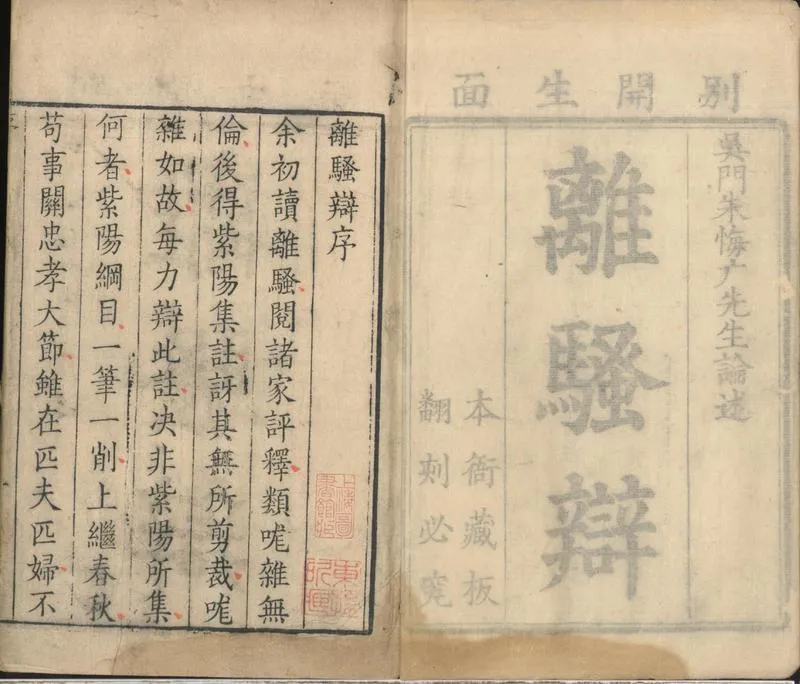 別開生面
吳門朱悔广先生論述
離騷辯
本衙藏板
翻刻必究
離騷辯序
余初讀離騷閱諸家評釋類呢雜無
倫後得紫陽集註訝其無所剪裁呢
雜如故每力辯此註决非紫陽所集
何者紫陽綱目一筆一削上繼春秋
苟事關忠孝大節雖在匹夫匹婦不
上海圖書館藏